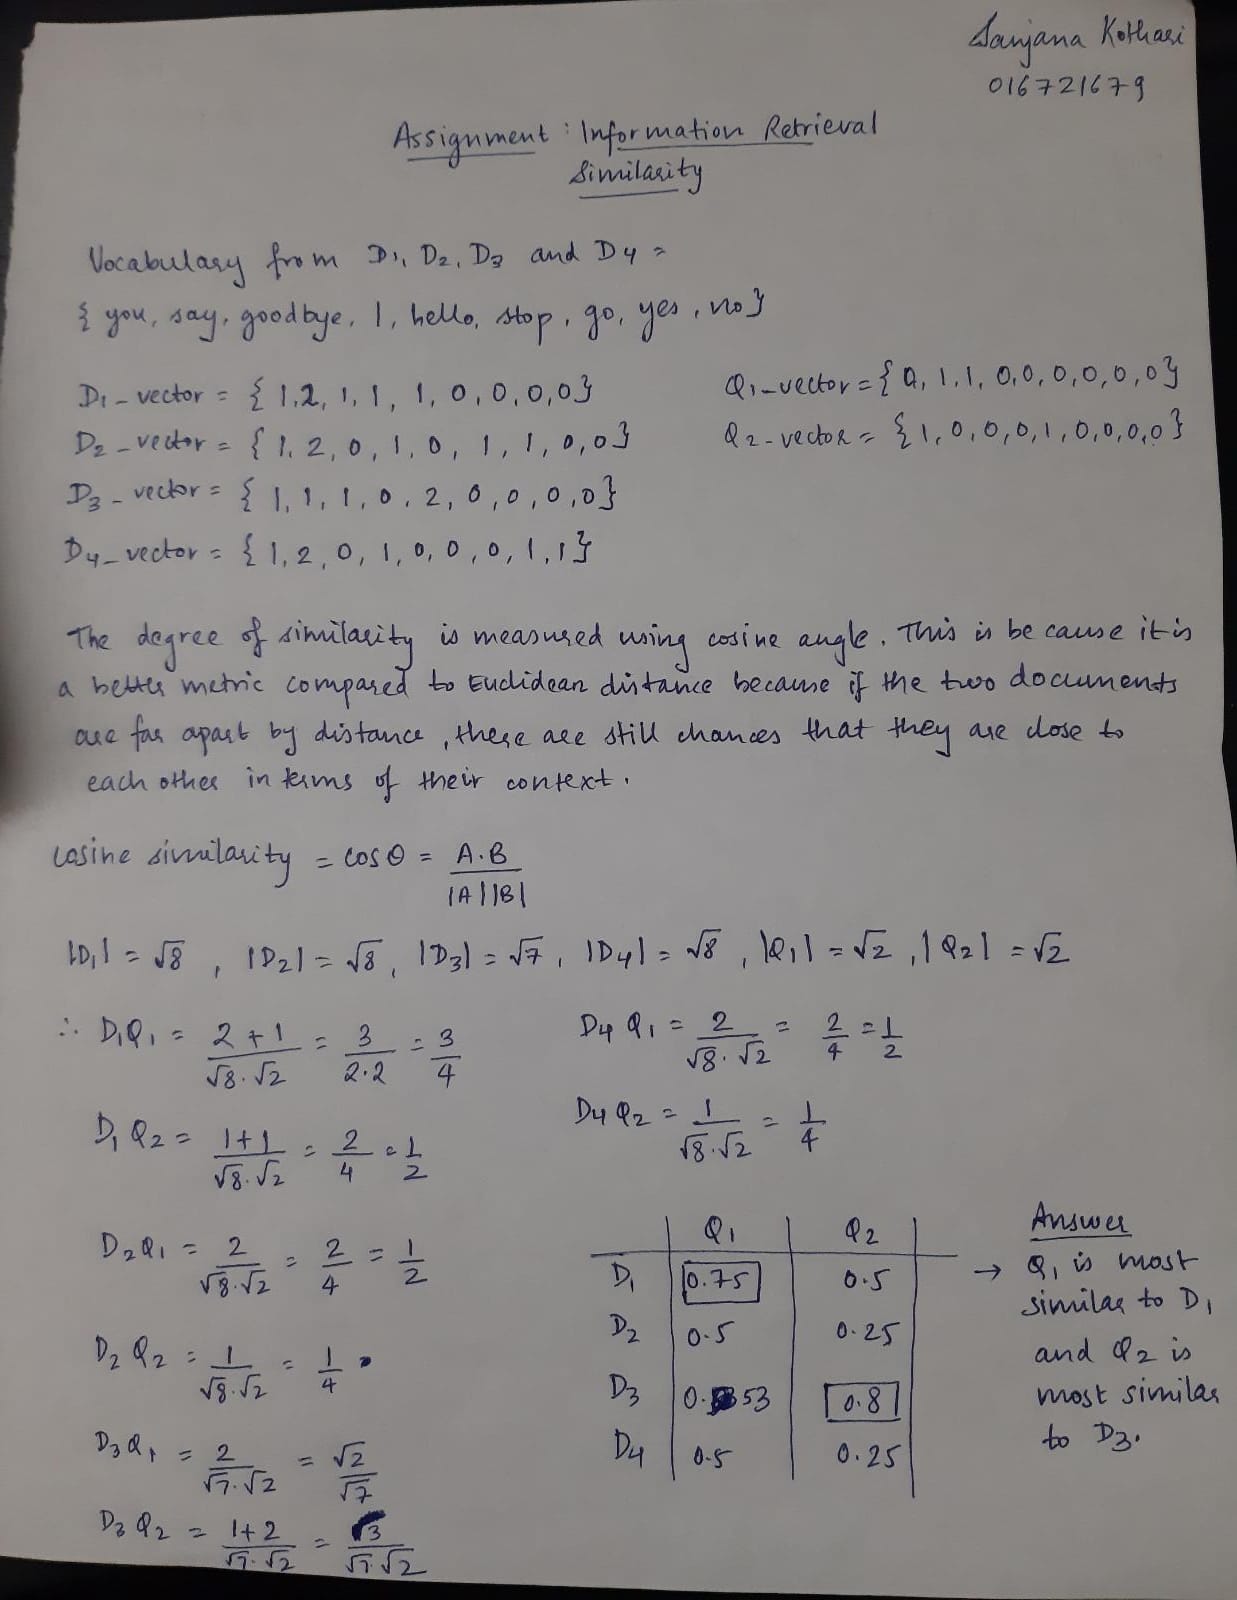 Sanjana Kothari
016721679
Assignment : Information Retrieval
Similarity
Vocabulary from D1, D2, D3 and D4 =
{ you, say, goodbye, I, hello, stop, go, yes, no }
D1_vector = { 1,2, 1, 1, 1, 0, 0, 0, 0}
Q1_vector = { 0, 1, 1, 0, 0, 0, 0, 0, 0 }
D2_vector = { 1, 2, 0, 1, 0, 1, 1, 0, 0 }
Q2_vector = { 1, 0, 0, 0, 1, 0, 0, 0, 0 }
D3_vector = { 1, 1, 1, 0, 2, 0, 0, 0, 0 }
D4_vector = { 1, 2, 0, 1, 0, 0, 0, 1, 1 }
The degree of similarity is measured using cosine angle. This is because it is
a better metric compared to Euclidean distance because if the two documents
are far apart by distance, there are still chances that they are close to
each other in terms of their context.
Cosine similarity = cos θ = A.B / |A||B|
|D1| = √8 , |D2| = √8, |D3| = √7, |D4| = √8 , |Q1| = √2 , |Q2| = √2
∴ D1Q1 = 2 + 1 / √8 . √2 = 3 / 2.2 = 3/4
D1 Q2 = 1+1 / √8 . √2 = 2/4 = 1/2
D2Q1 = 2 / √8 . √2 = 2/4 = 1/2
D2 Q2 = 1 / √8 . √2 = 1/4
D3Q1 = 2 / √7 . √2 = √2 / √7
D3 Q2 = 1+2 / √7 . √2 = 3 / √7 . √2
D4 Q1 = 2 / √8 . √2 = 2/4 = 1/2
D4 Q2 = 1 / √8 . √2 = 1/4
Q1 Q2
D1 0.75 0.5
D2 0.5 0.25
D3 0.53 0.8
D4 0.5 0.25
Answer
→ Q1 is most
similar to D1
and Q2 is
most similar
to D3.